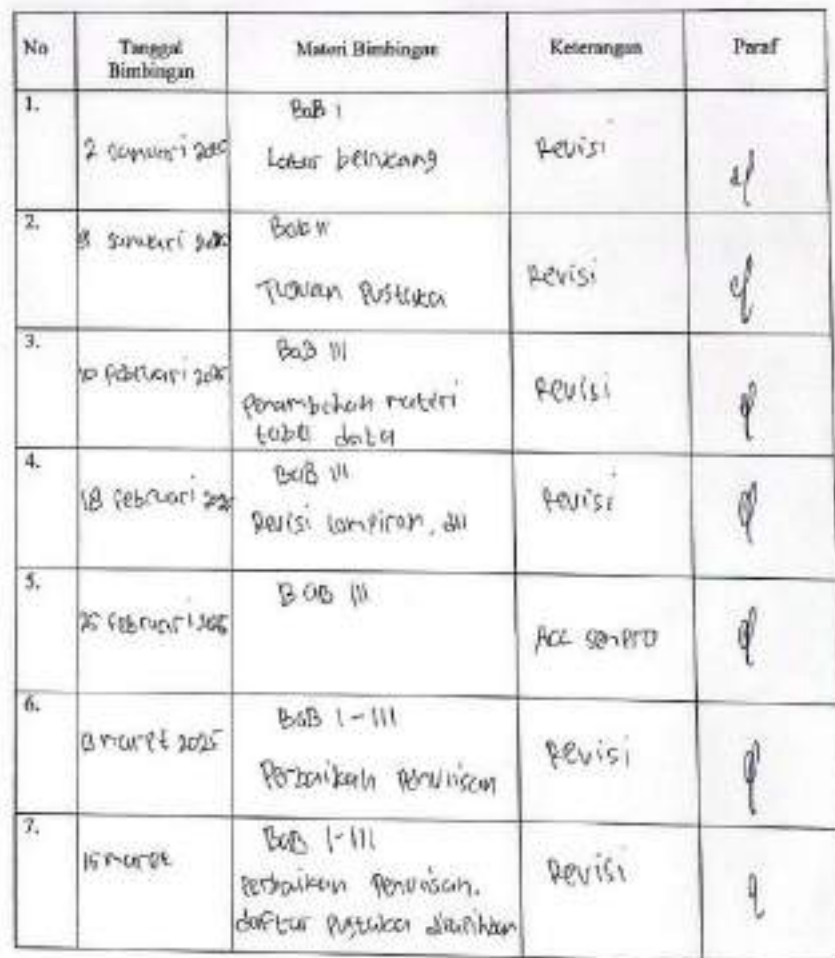 No Tanggal Bimbingan Materi Bimbingan Keterangan Paraf
1.
2 Januari
BaB I
Latar belakang
Revisi
2.
Januari
Bab II
Tinjauan Pustaka
Revisi
3.
10 Februari 2025
BaB III
Penambahan materi
tabel data
Revisi
4.
18 Februari
BaB III
Revisi lampiran, dll
Revisi
5.
25 Februari 2025
BAB III
ACC sempro
6.
maret 2025
BaB I-III
Perbaikan Penulisan
Revisi
7.
15 maret
BaB I-III
Perbaikan Penulisan.
daftar pustaka dirapihkan
Revisi